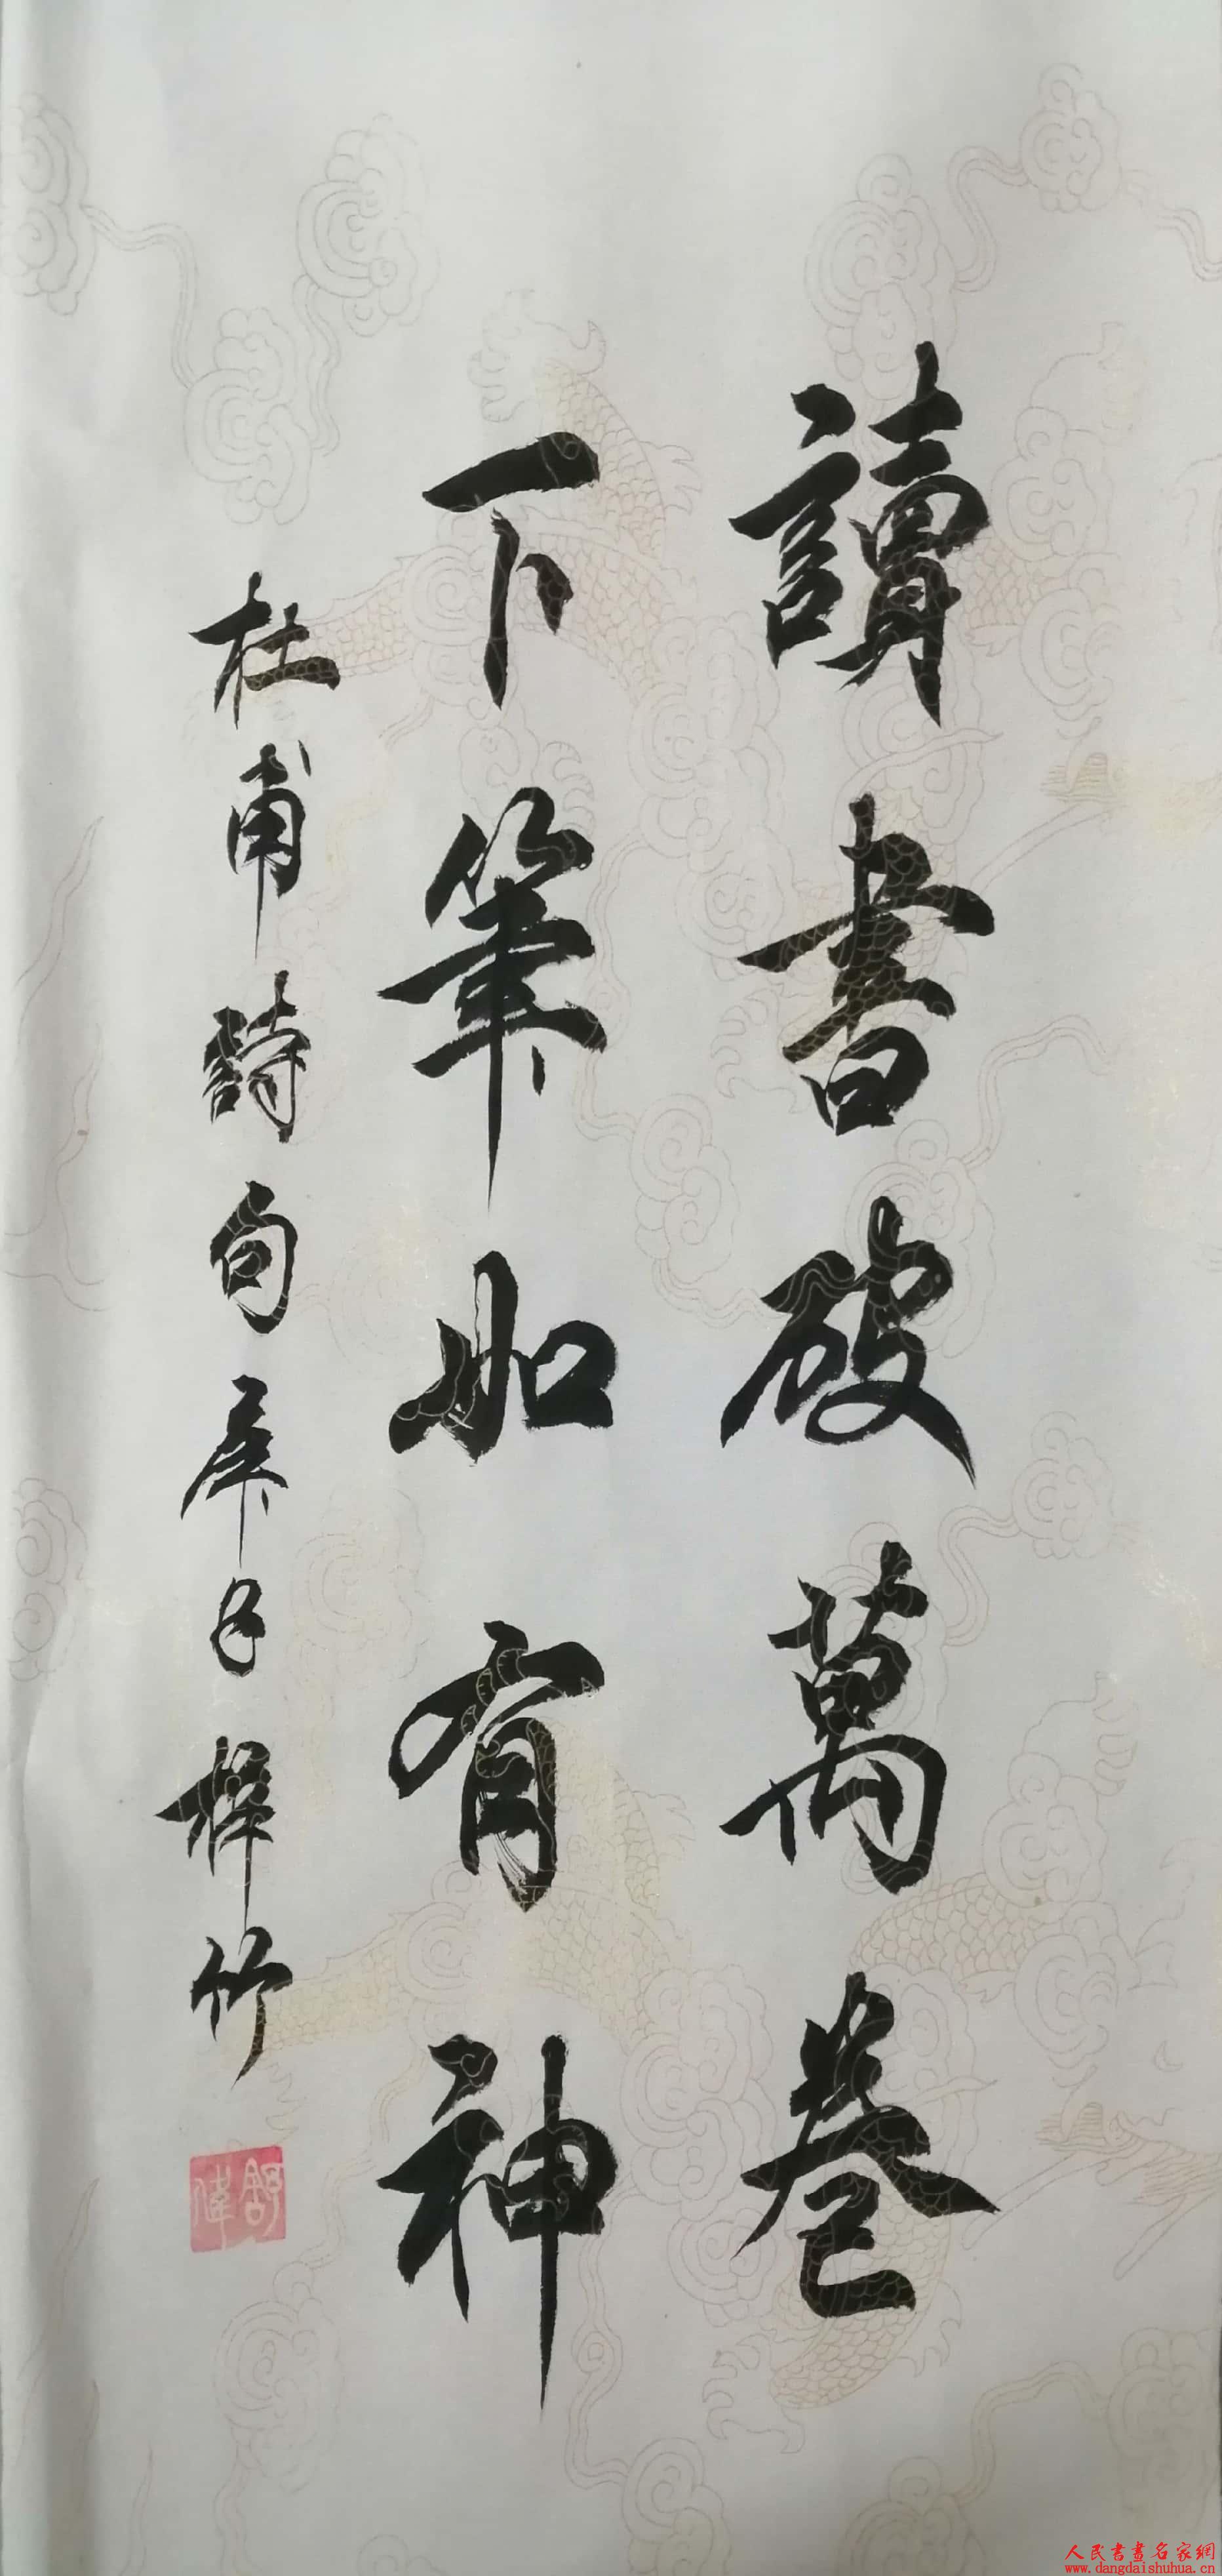 讀書破萬卷
下筆如有神
杜甫詩句庚子梓竹
舒偉
人民書畫名家網
www.dangdaishuhua.cn